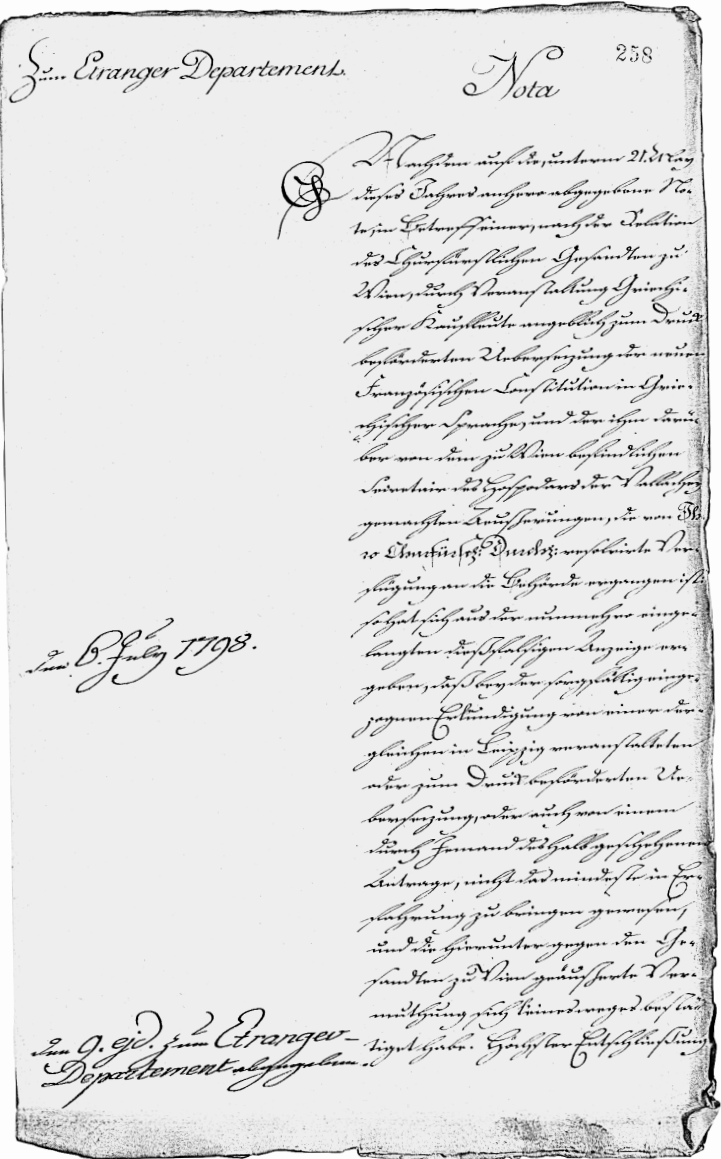 258
Zum Etranger Departement.
Nota
Nachdem auf die, unterm 21. May
dieses Jahres anhero abgegebene No-
te, in Betreff einer, nach der Relation
des Churfürstlichen Gesandten zu
Wien, durch Veranstaltung Griechi-
scher Kaufleute angeblich zum Druck
beförderten Uebersezung der neuen
Französischen Constitution in Grie-
chischer Sprache, und der ihm darü-
ber von dem zu Wien befindlichen
Secretair des Hospodars der Vallachey
gemachten Aeußerungen, die von Ih-
ro Churfürstl: Durchl: resolvirte Ver-
fügung an die Behörde ergangen ist;
so hat sich aus der nunmehro einge-
langten dießfalsigen Anzeige er-
geben, daß bey der sorgfältig einge-
zognen Erkundigung von einer der-
gleichen in Leipzig veranstalteten
oder zum Druck beförderten Ue-
bersezung, oder auch von einem
durch Jemand deshalb geschehenen
Antrage, nicht das mindeste in Er-
fahrung zu bringen gewesen,
und die hierunter gegen den Ge-
sandten zu Wien geäußerte Ver-
muthung sich keinesweges bestä-
tiget habe. Höchster Entschließung
den 6. July 1798.
den 9. ejd. zum Etranger-
Departement abgegeben.